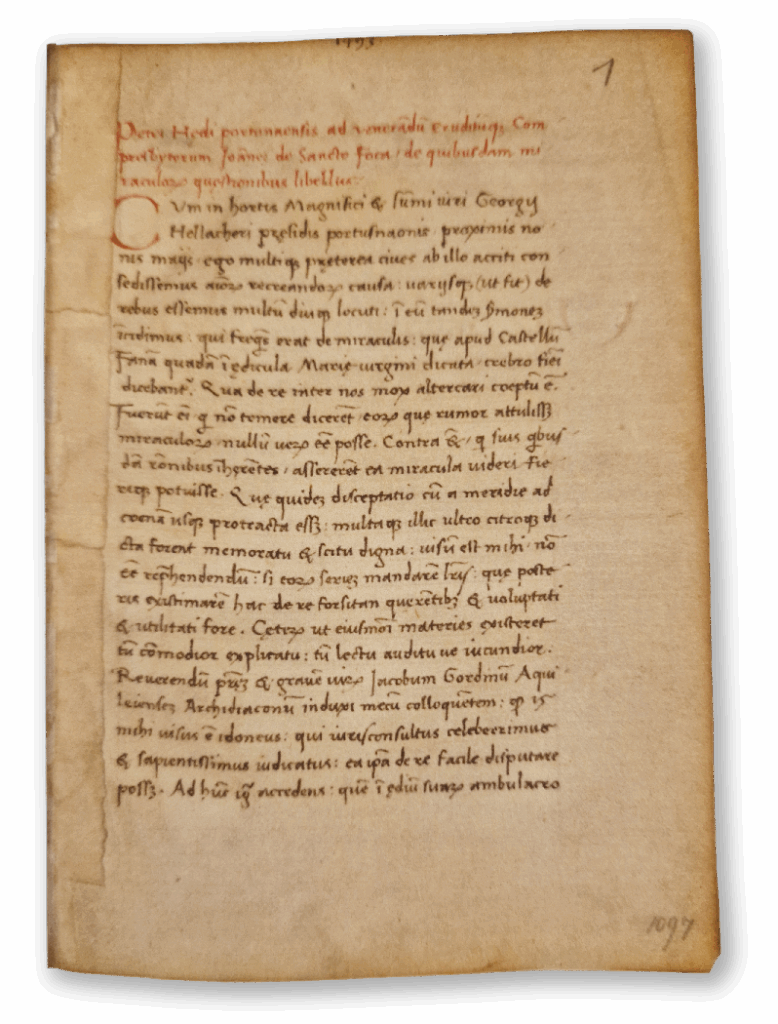 1493
1
Petri Hedi portunaensis ad venerādū eruditūq; Com
presbyterum Joānē de Sancto Foca · de quibusdam mi
raculoꝝ quęstionibus libellus ·
CVm in hortis Magnifici & sūmi viri Georgij
Hellacheri pręsidis portusnaonis · proximis no
nis maijs · ego multiq; pręterea ciues ab illo acciti con
sedissemus aīoꝝ recreandoꝝ causa : uarijsq; (ut fit) de
rebus essemus multū diuq; locuti : ī eū tandeꝫ ẜmoneꝫ
īcidimus : qui freq̄ērat de miraculis : quę apud Castellū
Fanā quadā ī ędicula Marię uirgini dicata · crebro fieri
dicebant᷑. Qua de re inter nos mox altercari cęptū ē.
Fuerūt em̄ · q̄ nō temere dicerēt · eoꝝ quę rumor attulissꝫ
miraculoꝝ · nullū ueꝝ ēē posse. Contra & · q̄ suis q̄bus
dā rōnibus īhęrētes · assererēt ea miracula uideri fie
riq; potuisse. Quę quideꝫ disceptatio cū a meridie ad
cœnā usq; protracta essꝫ : multaq; illic ultro citroq; di
cta forent memoratu & scitu digna : uisū est mihi · nō
ēē rep̄hendendū : si eoꝝ serieꝫ mandarē lr̄is : quę poste
ris existimarē hac de re forsitan querētibꝫ & uoluptati
& utilitati fore. Cęteꝝ ut eiusmōi materies existeret
tū cōmodior explicatu : tū lectu auditu ue iucundior.
Reuerendū pr̄eꝫ & grauē uiꝝ Jacobum Gordinū Aqui
leienseꝫ Archidiaconū induxi mecū colloquētem : ꝙ is
mihi uisus ē idoneus : qui iurisconsultus celeberrimus
& sapientissimus iudicatus : ea ip̄a de re facile disputare
possꝫ. Ad hūc igr̄ accedens : quē ī ędiū suaꝝ ambulacro
1097